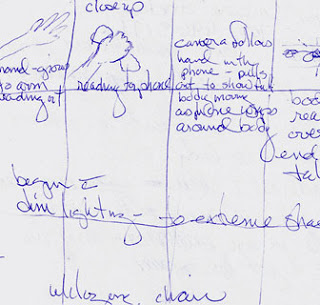 closeup
hand -
to arm
reading at
reading to phone
camera follow
hand with
phone - pulls
out to show full
body moving
as phone
around body
body
rea
over
end
tal
begin
dim lighting - to extreme sha
chair